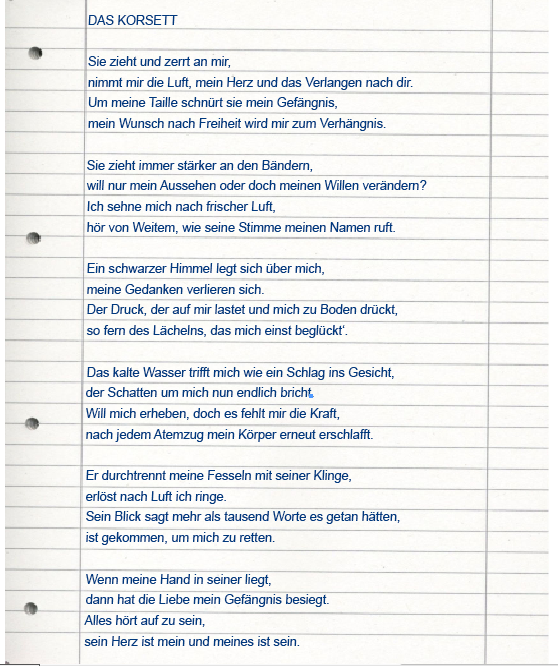 DAS KORSETT
Sie zieht und zerrt an mir,
nimmt mir die Luft, mein Herz und das Verlangen nach dir.
Um meine Taille schnürt sie mein Gefängnis,
mein Wunsch nach Freiheit wird mir zum Verhängnis.
Sie zieht immer stärker an den Bändern,
will nur mein Aussehen oder doch meinen Willen verändern?
Ich sehne mich nach frischer Luft,
hör von Weitem, wie seine Stimme meinen Namen ruft.
Ein schwarzer Himmel legt sich über mich,
meine Gedanken verlieren sich.
Der Druck, der auf mir lastet und mich zu Boden drückt,
so fern des Lächelns, das mich einst beglückt‘.
Das kalte Wasser trifft mich wie ein Schlag ins Gesicht,
der Schatten um mich nun endlich bricht.
Will mich erheben, doch es fehlt mir die Kraft,
nach jedem Atemzug mein Körper erneut erschlafft.
Er durchtrennt meine Fesseln mit seiner Klinge,
erlöst nach Luft ich ringe.
Sein Blick sagt mehr als tausend Worte es getan hätten,
ist gekommen, um mich zu retten.
Wenn meine Hand in seiner liegt,
dann hat die Liebe mein Gefängnis besiegt.
Alles hört auf zu sein,
sein Herz ist mein und meines ist sein.